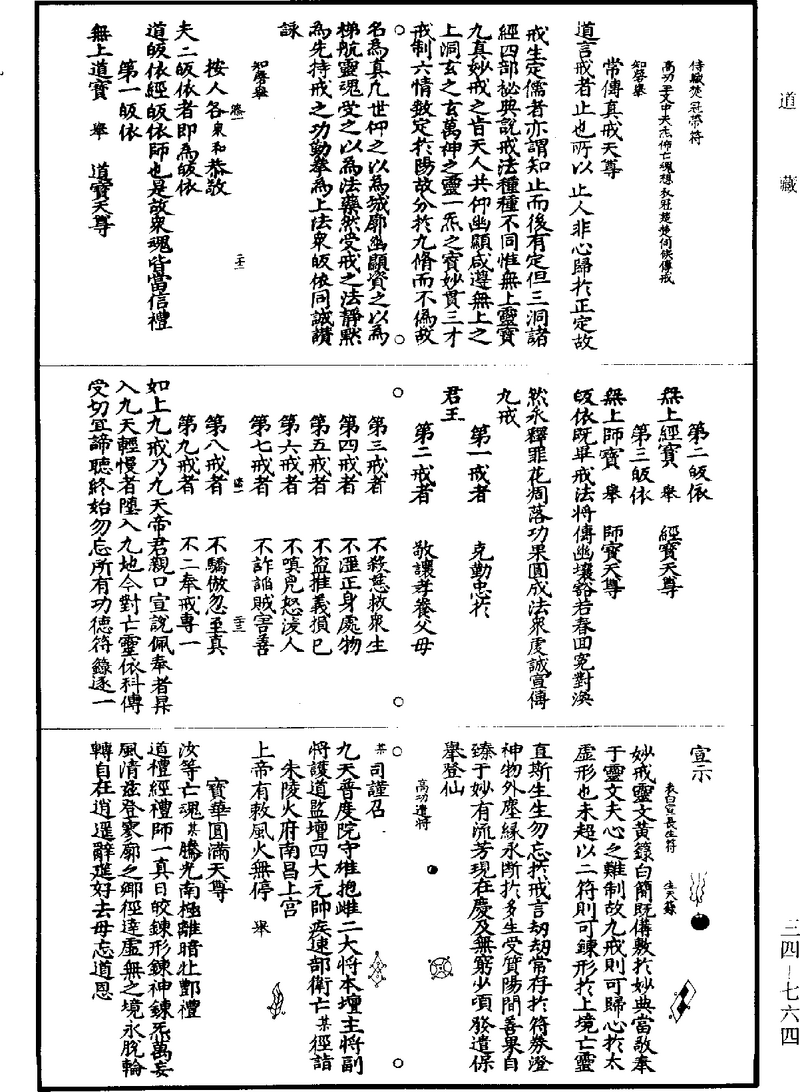 道藏
侍職焚冠帶符
常傳真戒天尊
知磬舉
道言戒者止也所以止人非心歸於正定故
戒生定儒者亦謂知止而後有定但三洞諸
經四部祕典說戒法種種不同惟無上靈寶
九真妙戒之旨天人共仰幽顯咸遵無上之
上洞玄之玄萬神之靈一炁之寶妙貫三才
戒制六情數定於陽故分於九脩而不偽故
名為真凡世仰之以為城廓幽顯資之以為
梯航靈魂受之以為法藥然受戒之法靜默
為先持戒之功勤拳為上法眾皈依同誠讚
詠
知磬舉
按人各眾和恭敬
夫二皈依者即為皈依
道皈依經皈依師也是故眾魂皆當信禮
第一皈依
無上道寶 舉 道寶天尊
第二皈依
無上經寶 舉 經寶天尊
第三皈依
無上師寶 舉 師寶天尊
皈依既畢戒法將傳幽壤豁若春回冤對渙
然永釋罪花凋落功果圓成法眾虔誠宣傳
九戒
第一戒者 克勤忠於
君王
第二戒者 敬讓孝養父母
第三戒者 不殺慈救眾生
第四戒者 不淫正身處物
第五戒者 不盜推義損己
第六戒者 不嗔兇怒凌人
第七戒者 不詐諂賊害善
第八戒者 不驕傲忽至真
第九戒者 不二奉戒專一
如上九戒乃九天帝君親口宣說佩奉者昇
入九天輕慢者墮入九地今對亡靈依科傳
受切宜諦聽終始勿忘所有功德符籙逐一
宣示
表白宣長生符 生天籙
妙戒靈文黃籙白簡既傳敷於妙典當敬奉
于靈文夫心之難制故九戒則可歸心於太
虛形也未超以二符則可鍊形於上境亡靈
直斯生生勿忘於戒言劫劫常存於符券澄
神物外塵緣永斷於多生受質陽間善果自
臻于妙有流芳現在慶及無窮少頃發遣保
舉登仙
高功遣將
某司謹召
九天普度院守雄抱雌二大將本壇主將副
將護道監壇四大元帥疾速部衛亡某徑詣
朱陵火府南昌上宮
上帝有敕風火無停 舉
寶華圓滿天尊
汝等亡魂某騰光南極離暗北酆禮
道禮經禮師一真日皎鍊形鍊神鍊炁萬妄
風清茲登寥廓之鄉徑達虛無之境永脫輪
轉自在逍遙辭進好去毋忘道恩
三四—七六四